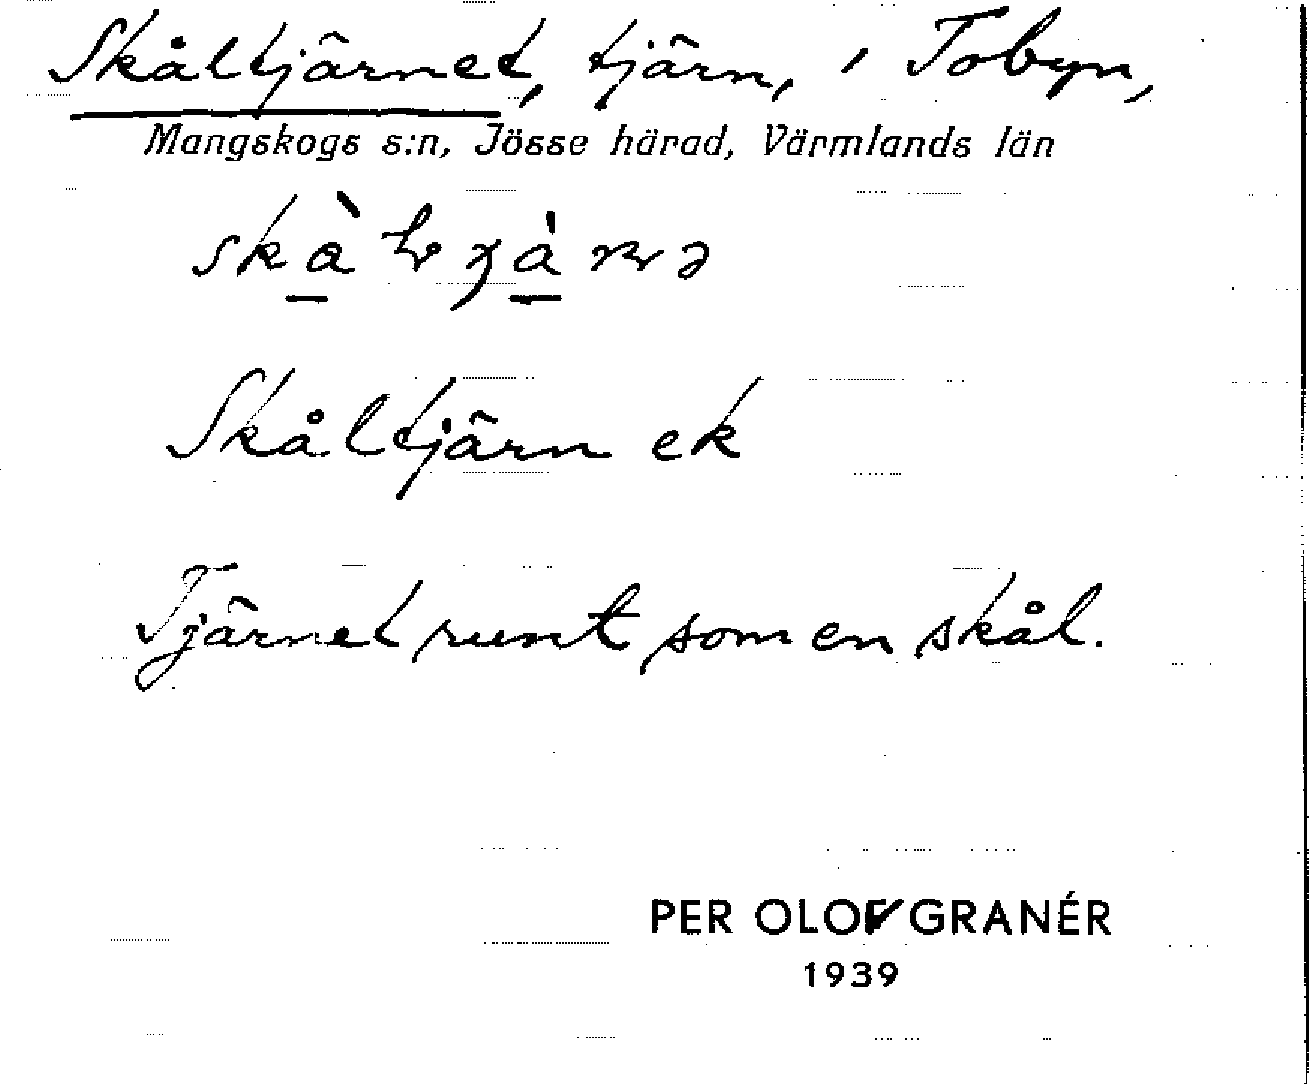 Skåltjärnet, tjärn, i Tobyn,
Mangskogs s:n, Jösse härad, Värmlands län
Skåltjärn ek
Tjärnet runt som en skål.
PER OLOF GRANÉR
1939